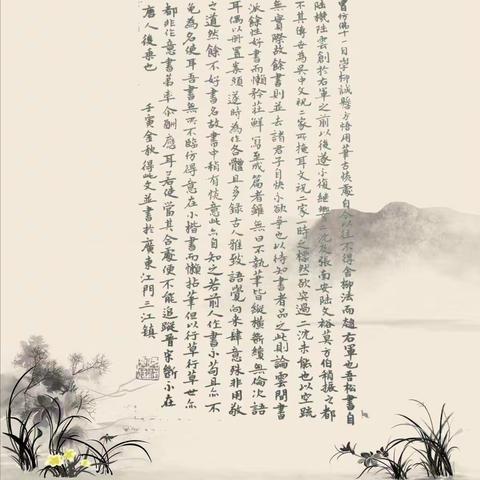 嘗仿佛十一日學柳誠懸方悟用筆古淡處自今以往不得舍柳法而趨右軍也吾松書自
陸機陸雲創於右軍之前以後遂不復繼響二沈及張南安陸文裕莫方伯稍振之都
不其傳吾為吳中文祝二家所掩耳文祝二家一時之標然欲突過二沈未能也以空疏
無實際故餘書則並去諸君子自快不欲爭也以待知書者品之此則論雲間書
派餘性好書而懶矜莊鮮寫至成篇者雖無日不執筆皆縱橫斷續無倫次語
耳偶以冊置案頭遂時為作各體且多錄古人雅致語覺向来肆意殊非用敬
之道然餘不好書名故書中稍有淡意此亦自知之若前人作書不苟且亦不
免為名使耳吾書無所不臨仿得意在小楷書而懶拈筆但以行草行草世亦
都非作意書第率尒酬應耳若使當其合處便不能追蹤晉宋斷不在
唐人後乘也 壬寅金秋得此文並書於廣東江門三江鎮